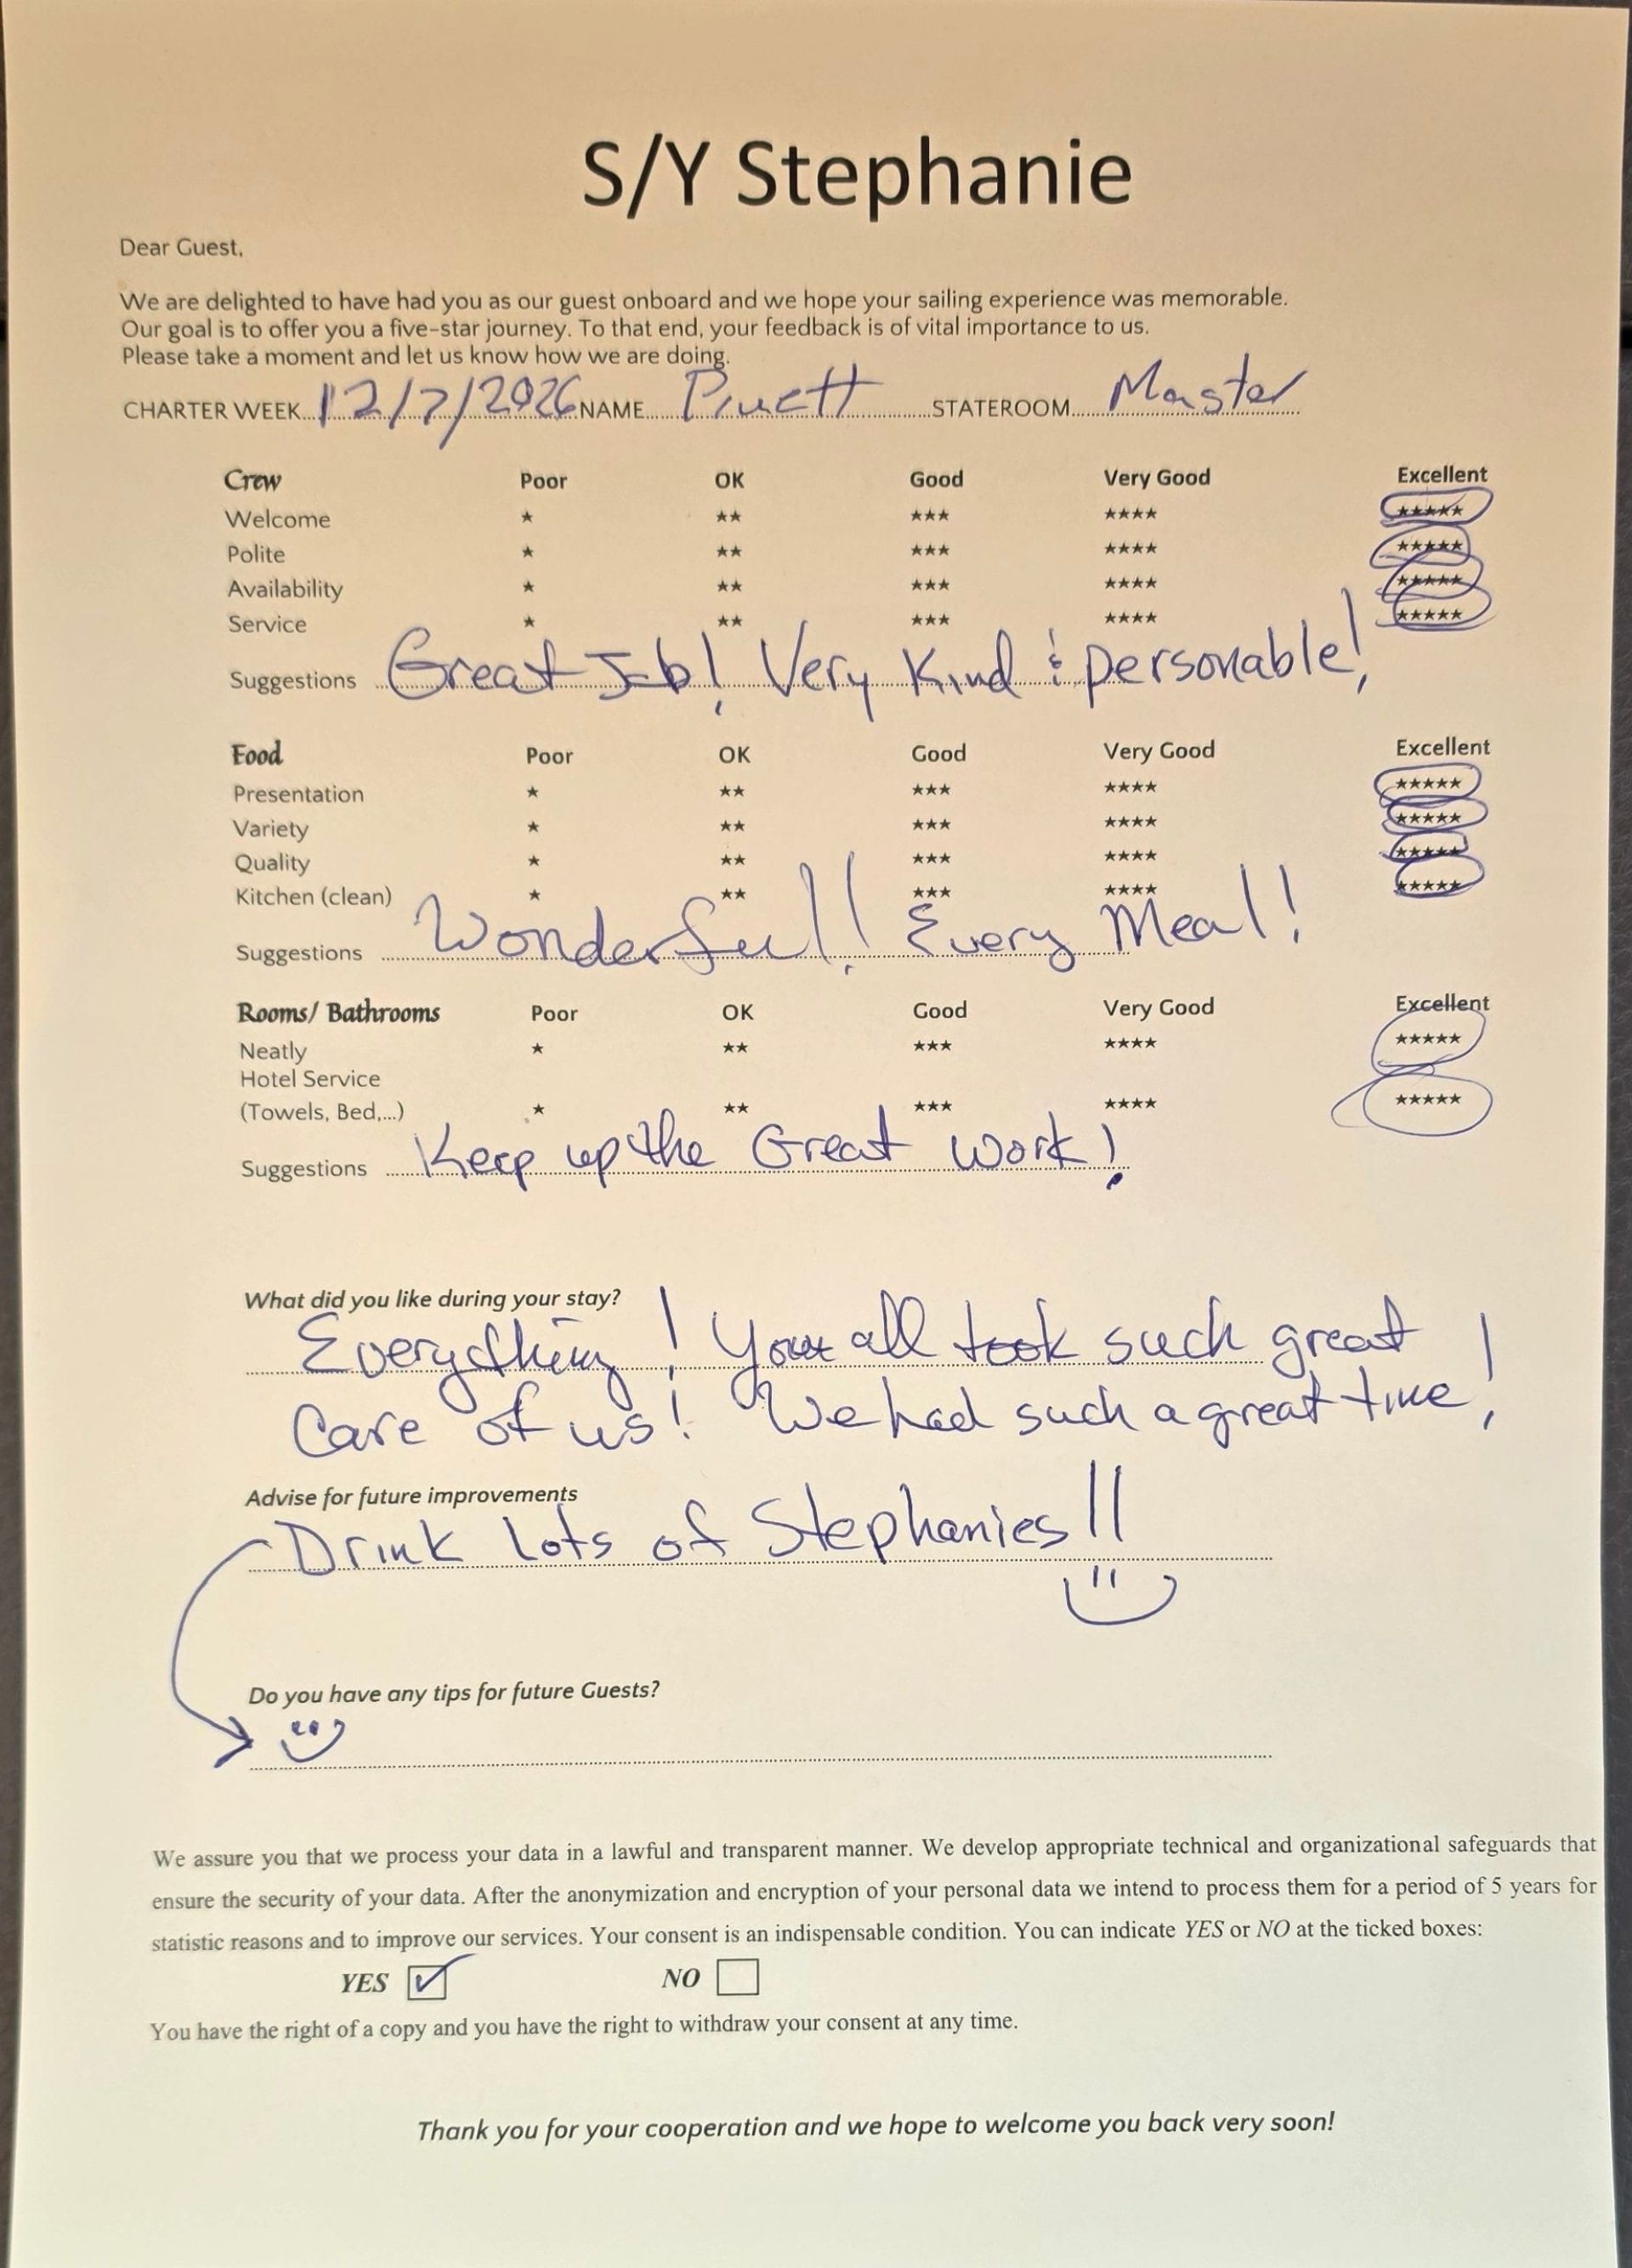 S/Y Stephanie
Dear Guest,
We are delighted to have had you as our guest onboard and we hope your sailing experience was memorable.
Our goal is to offer you a five-star journey. To that end, your feedback is of vital importance to us.
Please take a moment and let us know how we are doing.
CHARTER WEEK 12/7/2026 NAME Pruett STATEROOM Master
Crew Poor OK Good Very Good Excellent
Welcome ★ ★★ ★★★ ★★★★ ★★★★★
Polite ★ ★★ ★★★ ★★★★ ★★★★★
Availability ★ ★★ ★★★ ★★★★ ★★★★★
Service ★ ★★ ★★★ ★★★★ ★★★★★
Suggestions Great Job! Very Kind & personable!
Food Poor OK Good Very Good Excellent
Presentation ★ ★★ ★★★ ★★★★ ★★★★★
Variety ★ ★★ ★★★ ★★★★ ★★★★★
Quality ★ ★★ ★★★ ★★★★ ★★★★★
Kitchen (clean) ★ ★★ ★★★ ★★★★ ★★★★★
Suggestions Wonderful! Every Meal!
Rooms/ Bathrooms Poor OK Good Very Good Excellent
Neatly ★ ★★ ★★★ ★★★★ ★★★★★
Hotel Service
(Towels, Bed,...) ★ ★★ ★★★ ★★★★ ★★★★★
Suggestions Keep up the Great work!
What did you like during your stay?
Everything! You all took such great
care of us! We had such a great time!
Advise for future improvements
Drink Lots of Stephanies!!
Do you have any tips for future Guests?
We assure you that we process your data in a lawful and transparent manner. We develop appropriate technical and organizational safeguards that
ensure the security of your data. After the anonymization and encryption of your personal data we intend to process them for a period of 5 years for
statistic reasons and to improve our services. Your consent is an indispensable condition. You can indicate YES or NO at the ticked boxes:
YES ☑ NO ☐
You have the right of a copy and you have the right to withdraw your consent at any time.
Thank you for your cooperation and we hope to welcome you back very soon!